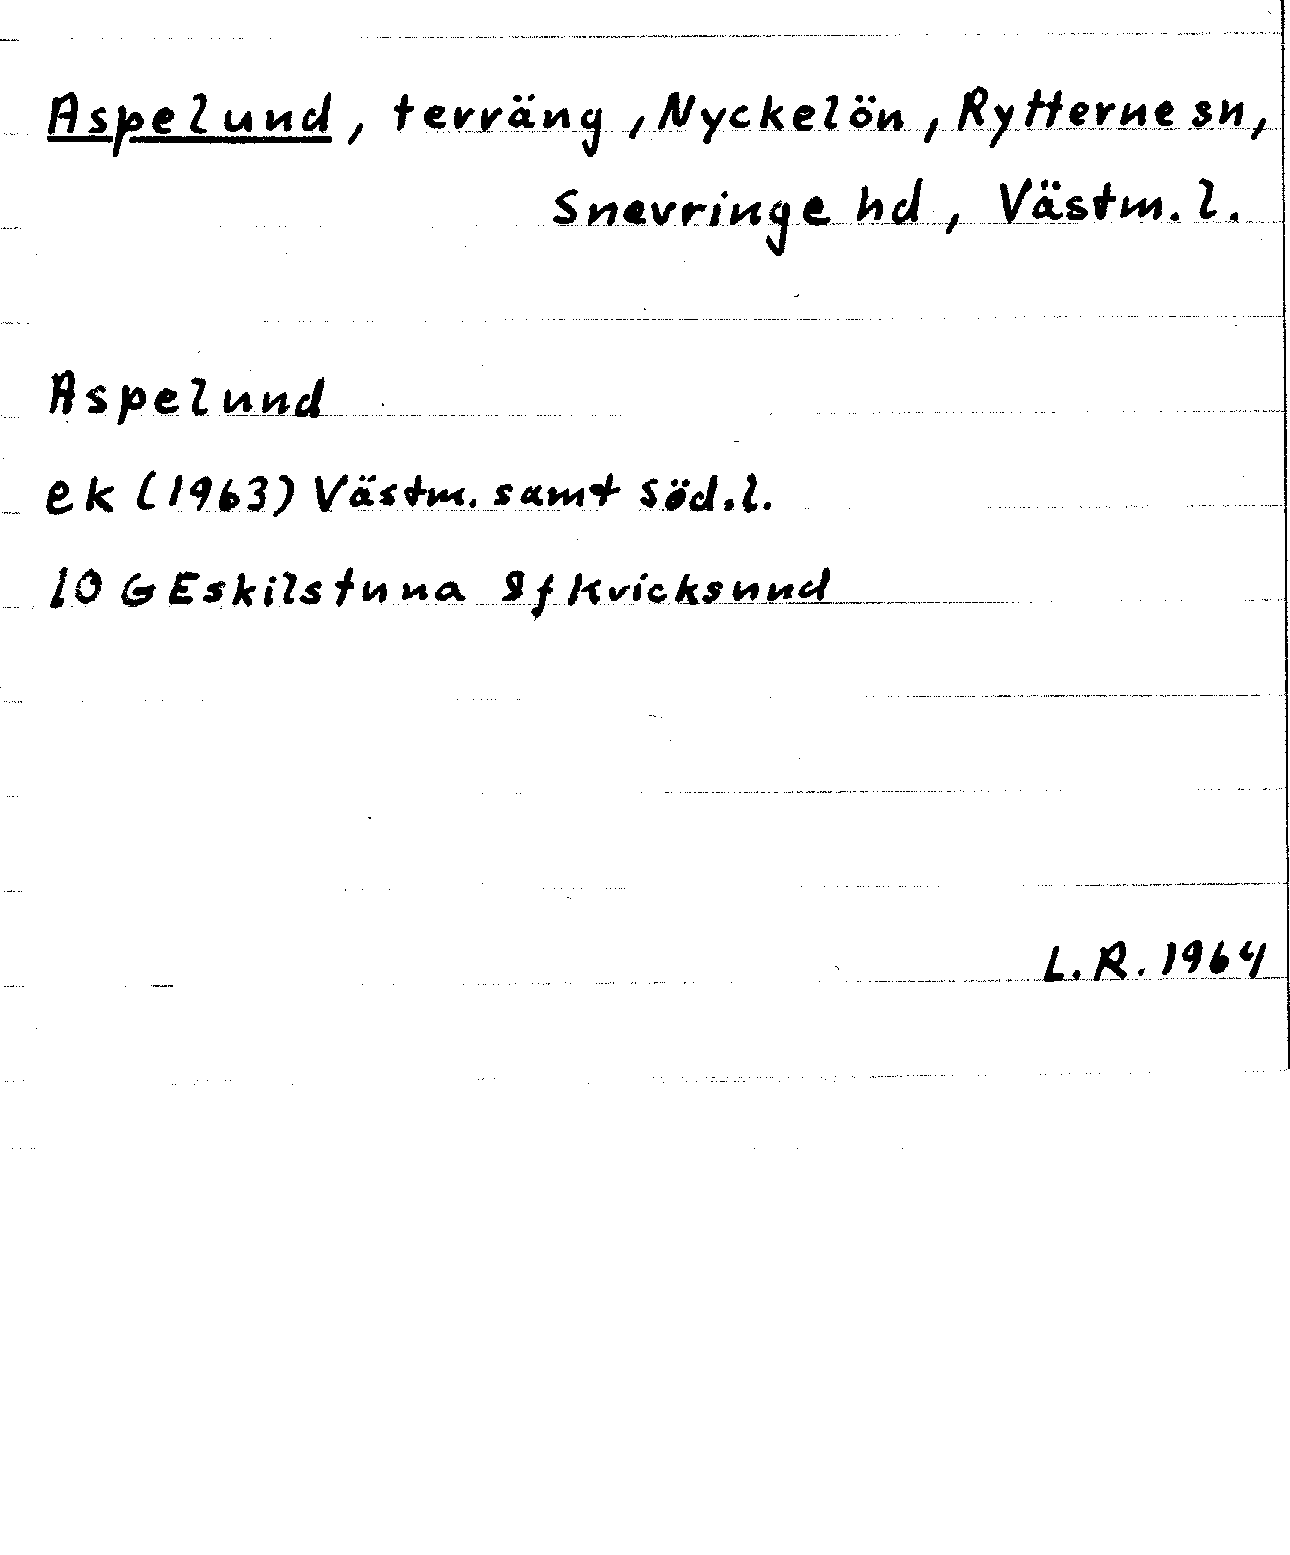 Aspelund, terräng, Nyckelön, Rytterne sn,
Snevringe hd, Västm.l.
Aspelund
ek (1963) Västm. samt Söd.l.
10 G Eskilstuna 9f Kvicksund
L.R. 1964